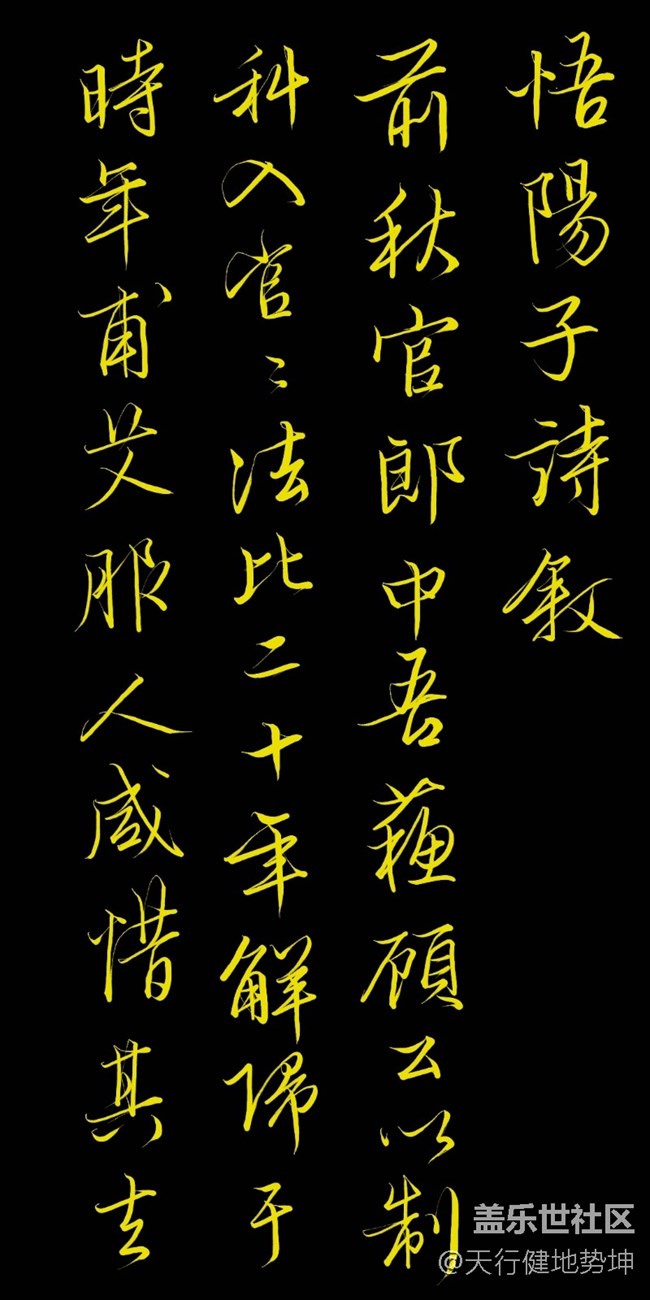 悟陽子詩敘
前秋官郎中吾蘓顧公以制
科入官〻法比二十年解歸于
時年甫艾服人咸惜其去
盖乐世社区
@天行健地势坤